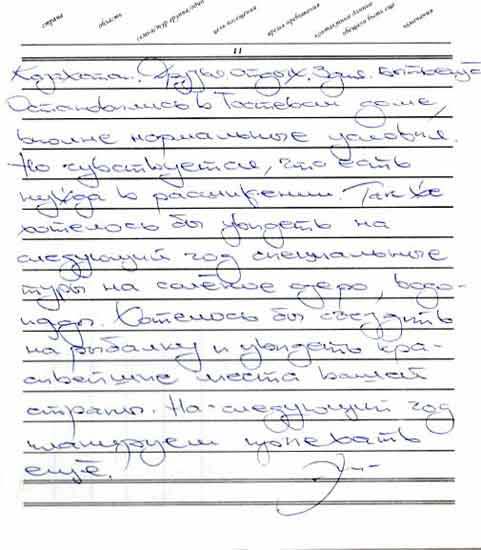 страна область цель посещения время пребывания контактные данные замечания
11
отдых. 3 дня.
Остановились в Гостевом доме,
вполне нормальные условия.
Но чувствуется, что есть
нужда в расширении. Так же
хотелось бы увидеть на
следующий год специальные
туры на солёное озеро, водо-
пады. Хотелось бы съездить
на рыбалку и увидеть кра-
сивейшие места вашей
страны. На следующий год
планируем приехать
ещё.